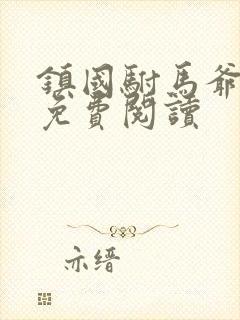 鎮國駙馬爺
免費閱讀
亦缙